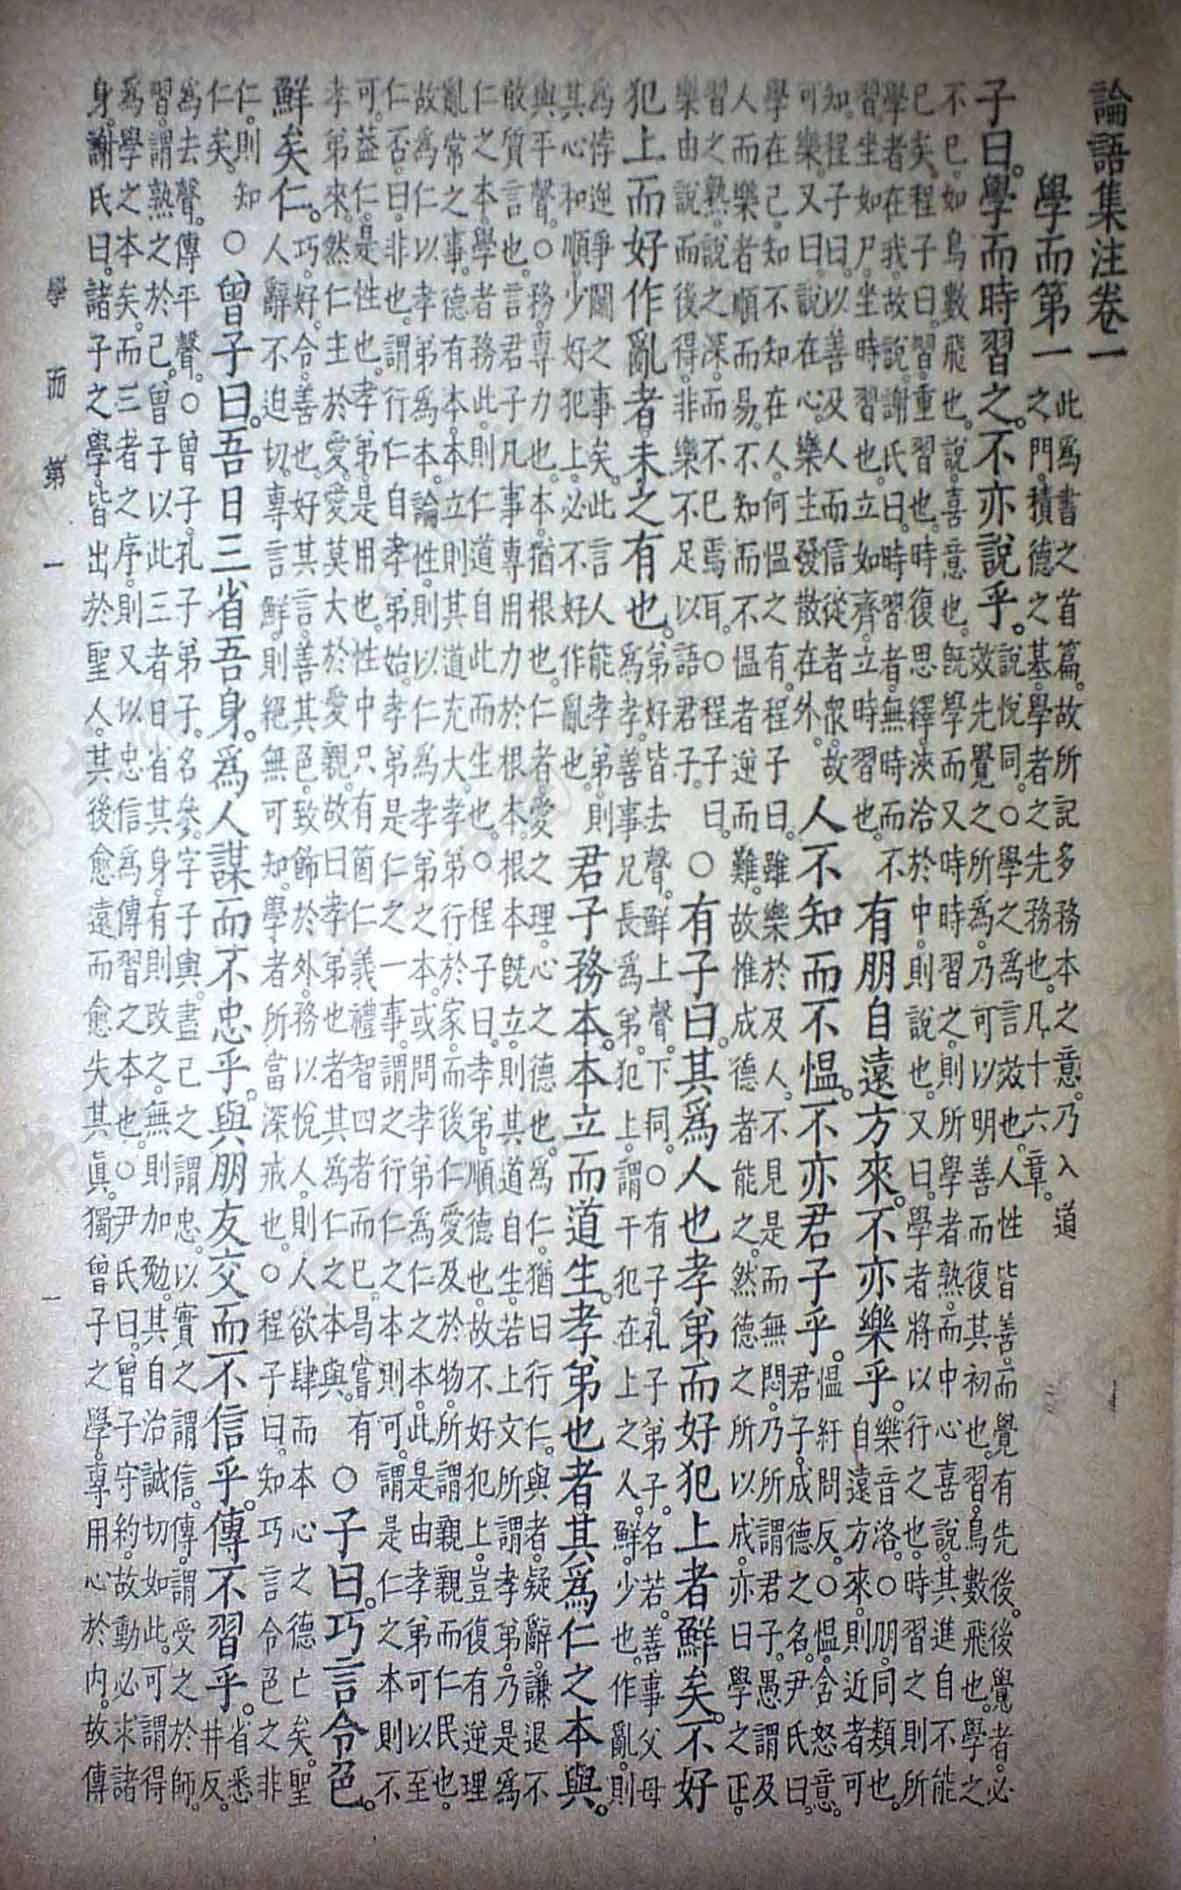 論語集注卷一
學而第一
此爲書之首篇。故所記多務本之意。乃入道
之門。積德之基。學者之先務也。凡十六章。
子曰。學而時習之。不亦說乎。
說悅同。○學之爲言效也。人性皆善。而覺有先後。後覺者。必
效先覺之所爲。乃可以明善而復其初也。習。鳥數飛也。學之
不已。如鳥數飛也。說。喜意也。旣學而又時時習之。則所學者熟。而中心喜說。其進自不能
已矣。程子曰。習。重習也。時復思繹。浹洽於中。則說也。又曰。學者將以行之也。時習之。則所
學者在我。故說。謝氏曰。時習者。無時而不
習。坐如尸。坐時習也。立如齊。立時習也。
有朋自遠方來。不亦樂乎。
樂音洛。○朋。同類也。
自遠方來。則近者可
知。程子曰。以善及人。而信從者衆。故
可樂。又曰。說在心。樂主發散在外。
人不知而不慍。不亦君子乎。
慍紆問反。○慍。含怒意。
君子。成德之名。尹氏曰。
學在己。知不知在人。何慍之有。程子曰。雖樂於及人。不見是而無悶。乃所謂君子。愚謂及
人而樂者順而易。不知而不慍者逆而難。故惟成德者能之。然德之所以成。亦曰學之正。
習之熟。說之深。而不已焉耳。○程子曰。
樂由說而後得。非樂不足以語君子。
○有子曰。其爲人也孝弟而好犯上者鮮矣。不好
犯上而好作亂者未之有也。
弟好皆去聲。鮮上聲。下同。○有子。孔子弟子。名若。善事父母
爲孝。善事兄長爲弟。犯上。謂干犯在上之人。鮮。少也。作亂。則
爲悖逆爭鬭之事矣。此言人能孝弟。則
其心和順。少好犯上。必不好作亂也。
君子務本。本立而道生。孝弟也者。其爲仁之本與。
與平聲。○務。專力也。本猶根也。仁者愛之理。心之德也。爲仁。猶曰行仁。與者。疑辭。謙退不
敢質言也。言君子凡事專用力於根本。根本旣立。則其道自生。若上文所謂孝弟。乃是爲
仁之本。學者務此。則仁道自此而生也。○程子曰。孝弟。順德也。故不好犯上。豈復有逆理
亂常之事。德有本。本立則其道充大。孝弟行於家。而後仁愛及於物。所謂親親而仁民也。
故爲仁以孝弟爲本。論性。則以仁爲孝弟之本。或問孝弟爲仁之本。此是由孝弟可以至
仁否。曰。非也。謂行仁自孝弟始。孝弟是仁之一事。謂之行仁之本則可。謂是仁之本則不
可。蓋仁。是性也。孝弟。是用也。性中只有箇仁義禮智四者而已。曷嘗有
孝弟來。然仁主於愛。愛莫大於愛親。故曰孝弟也者其爲仁之本與。
○子曰。巧言令色。
鮮矣仁。
巧好。令善也。好其言。善其色。致飾於外。務以悅人。則人欲肆而本心之德亡矣。聖
人辭不迫切。專言鮮。則絕無可知。學者所當深戒也。○程子曰。知巧言令色之非
仁。則知
仁矣。
○曾子曰。吾日三省吾身。爲人謀而不忠乎。與朋友交而不信乎。傳不習乎。
省悉
井反。
爲去聲。傳平聲。○曾子。孔子弟子。名參。字子輿。盡己之謂忠。以實之謂信。傳。謂受之於師。
習。謂熟之於己。曾子以此三者日省其身。有則改之。無則加勉。其自治誠切如此。可謂得
爲學之本矣。而三者之序。則又以忠信爲傳習之本也。○尹氏曰。曾子守約。故動必求諸
身。謝氏曰。諸子之學。皆出於聖人。其後愈遠而愈失其眞。獨曾子之學。專用心於內。故傳
學而第一
一